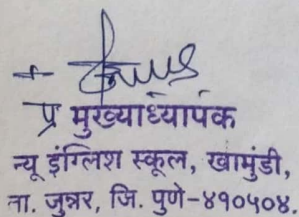 प्र मुख्याध्यापक
न्यू इंग्लिश स्कूल, खामुंडी,
ता. जुन्नर, जि. पुणे-४१०५०४.